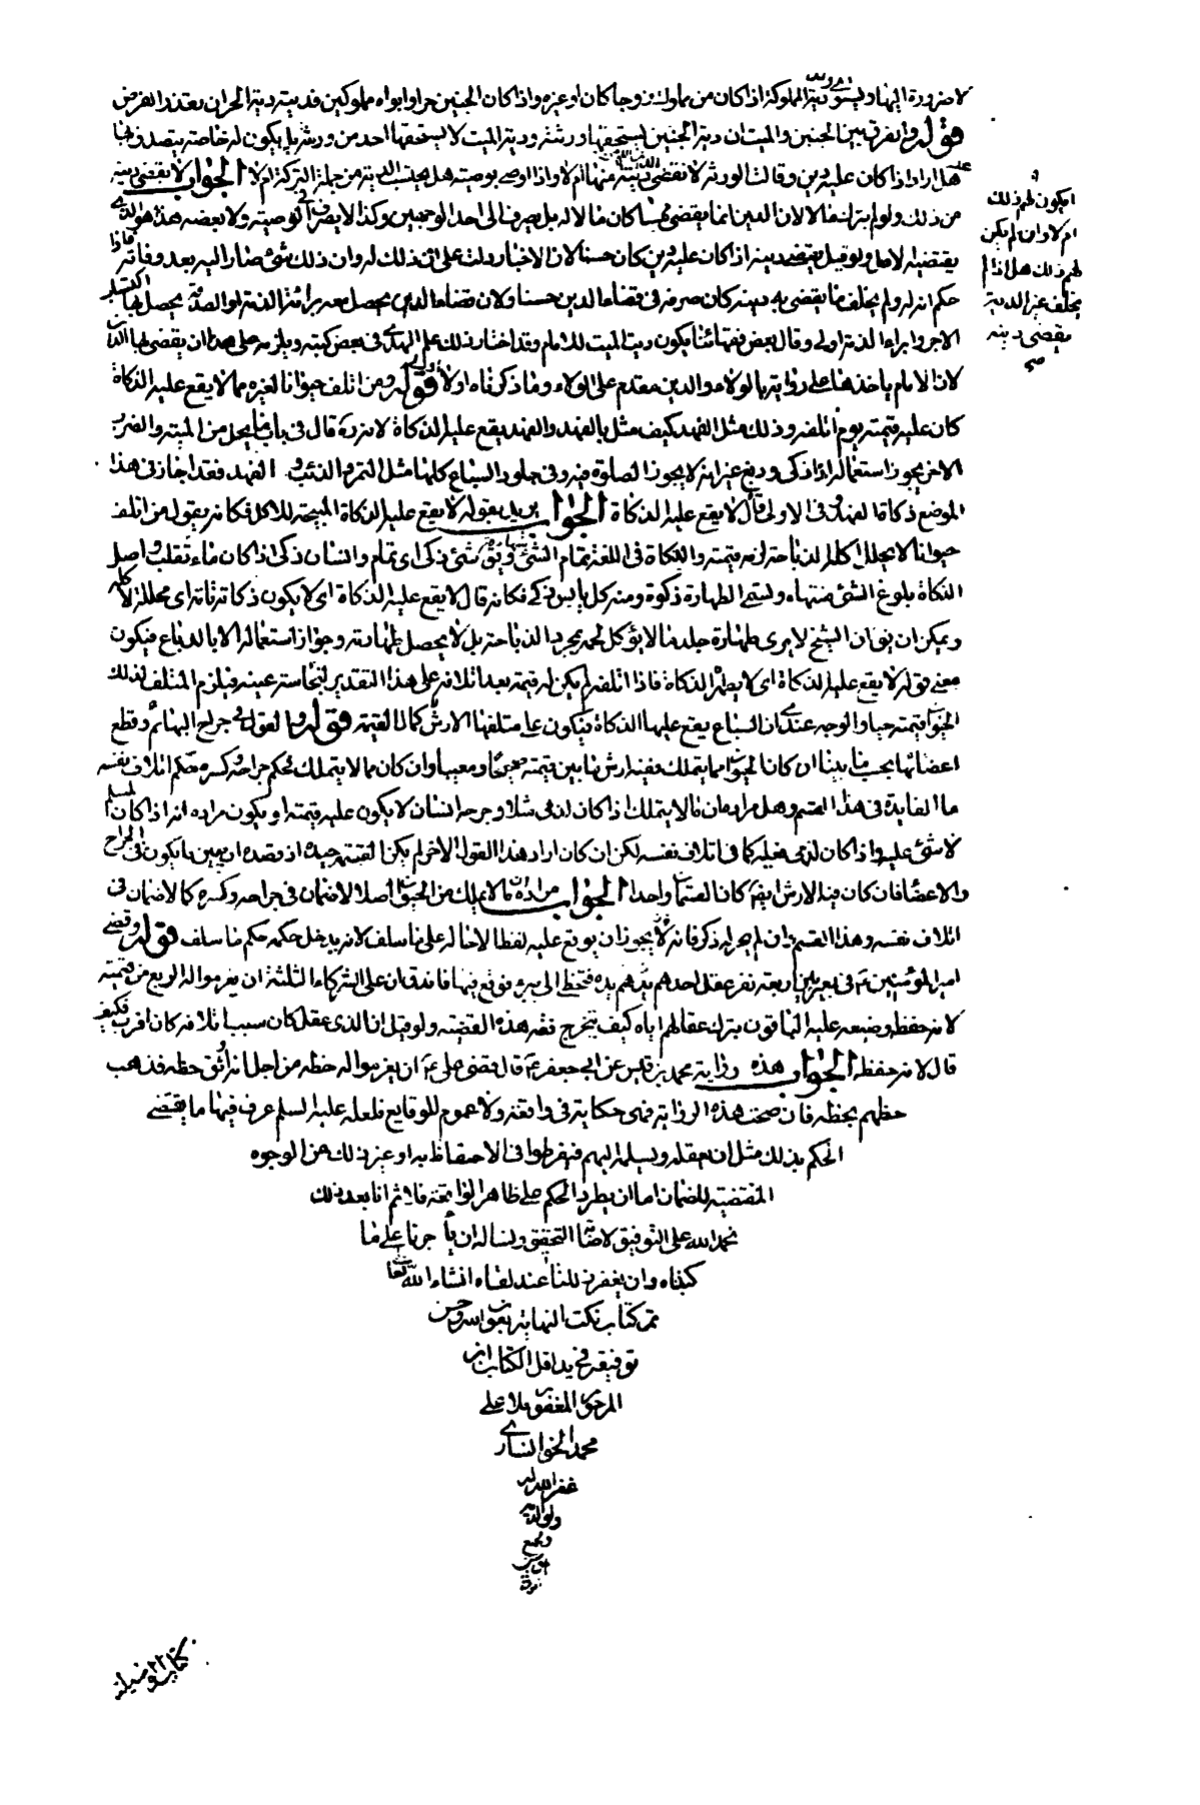 لا ضرورة اليها وليستوى دية المملوكة اذا كان من مملوك زوجا كان او غيره واذا كان الجنين حرا وابواه مملوكين فديته دية الحر ان بعتد الفرض
قوله والفرق بين الجنين والميت ان دية الجنين يستحقها ورثته ودية الميت لا يستحقها احد من ورثته بل يكون له خاصة يتصدق بها عنه
هل اراد اذا كان عليه دين وقالت الورثة لا نقضى دينه منها ام لا واذا اوصى بوصية هل يحتسب الدية من جملة التركة ام لا الجواب لا يقضى دينه
من ذلك ولو لم يترك مالا لان الدين انما يقضى مما كان مالا له بل يصرف الى احد الوجهين وكذا لا يصرف في الوصية ولا بعضه هذا هو الذى
يقتضيه الاصل ولو قيل يقضى دينه اذا كان عليه دين كان حسنا لان الاخبار دلت على ان ذلك له وان ذلك شئ صار اليه بعد وفاته فاذا
حكم انه له ولم يخلف ما يقضى به دينه كان صرفه في قضاء الدين حسنا ولان قضاء الدين يحصل معه براءة الذمة لو الصدقة يحصل بها
الاجر وابراء الذمة اولى وقال بعض فقهائنا يكون دية الميت للامام وقد اختار ذلك علم الهدى في بعض كتبه ويلزمه على هذا ان يقضى بها الدين
لان الامام ياخذها على روايته بالولاء والدين مقدم على الولاء وما ذكرناه اولا اولى قوله ومن اتلف حيوانا لغيره مما لا يقع عليه الذكاة
كان عليه قيمته يوم اتلفه وذلك مثل الفهد كيف مثل بالفهد والفهد يقع عليه الذكاة لانه قال في باب ما يحل من الميتة والضرب
الاخر يجوز استعماله اذا ذكى ودبغ غير انه لا يجوز الصلوة فيه وفي جلود السباع كلها مثل النمر والذئب و الفهد فقد اجاز في هذا
الموضع ذكاة الفهد وفي الاولى قال لا يقع عليه الذكاة الجواب يريد بقوله لا يقع عليه الذكاة المبيحة للاكل فكانه يقول من اتلف
حيوانا لا يحلل اكله الذباحة لزمه قيمته والذكاة في اللغة تمام الشئ يق شئ ذكى اى تمام وانسان ذكى اذا كان ماء قلب واصل
الذكاة بلوغ الشئ منتهاه وتسمى الطهارة ذكوة ومنه كل يابس ذكى فكانه قال لا يقع عليه الذكاة اى لا يكون ذكاته ذكاة اى محللة لاكله
ويمكن ان يق ان الشيخ لا يرى طهارة جلد ما لا يؤكل لحمه بمجرد الذباحة بل لا يحصل طهارته وجواز استعماله الا بالدباغ فيكون
معنى قوله لا يقع عليه الذكاة اى لا يطهره الذكاة فاذا اتلفه لم يكن له قيمة بعد اتلافه على هذا التقدير لنجاسة عينه فيلزم المتلف لذلك
الحيوان قيمته حيا والوجه عندى ان السباع يقع عليها الذكاة فيكون على متلفها الارش كمال القيمة قوله والقول في جراح البهائم وقطع
اعضائها بحسب ما بيناه ان كان الحيوان مما يتملك ففيه ارش ما بين قيمته صحيحا ومعيبا وان كان مما لا يتملك فحكم جراحه وكسره حكم اتلاف نفسه
ما الفايدة في هذا القسم وهل مراده ان ما لا يتملك اذا كان لذمى مثلا وجرحه انسان لا يكون عليه قيمته او يكون مراده انه اذا كان لمسلم
لا شئ عليه واذا كان لذمى فعليه كما في اتلاف نفسه لكن ان كان اراد هذا القول الاخر لم يكن القسمة جيدة اذ قصده ان يبين ما يكون في الجراح
والاعضاء فان كان فيه الارش ايضا كان القسمان واحدا الجواب مراده ان ما لا يملك من الحيوان اصلا لا ضمان في جراحه وكسره كما لا ضمان في
اتلاف نفسه وهذا القسم وان لم يجر له ذكر فانه لا يجوز ان يوقع عليه لفظا لاحالة على ما سلف لانه يدخل حكمه حكم ما سلف قوله وقضى
امير المؤمنين ع في بعير بين اربعة نفر عقل احدهم يده فتخطى الى بئر فوقع فيها فاندق ان على الشركاء الثلثة ان يغرموا له الربع من قيمته
لانه حفظه وضيعه عليه الباقون بترك عقالهم اياه كيف يتخرج فقه هذه القضية ولو قيل ان الذى عقل كان سبب اتلافه كان اقرب فكيف
قال لانه حفظ الجواب هذه رواية محمد بن قيس عن ابى جعفر ع قال قضى على ع ان يغرموا له حظه من اجل انه اوثق حظه فذهب
حظهم بحظه فان صحت هذه الرواية فهى حكاية في واقعة ولا عموم للوقايع فلعله عليه السلم عرف فيها ما يقتضى
الحكم بذلك مثل ان يعقله ويسلمه اليهم فيفرطوا في الاحتفاظ به او غير ذلك من الوجوه
المقتضية للضمان اما ان يطرد الحكم على ظاهر الواقعة فلا ثم انا بعد ذلك
نحمد الله على التوفيق لاصابة التحقيق ونساله ان يأجرنا على ما
كتبناه وان يغفر زللنا عند لقاه انشاء الله تعا
تم كتاب نكت النهاية بعون الله وحسن
توفيقه في يد اقل الكتاب ابن
المرحوم المغفور ملا على
محمد الخوانسارى
غفر الله له
ولوالديه
ولجميع
ايكون لهم ذلك
ام لا وان لم يكن
لهم ذلك هل اذا لم
يخلف غير الدية
يقضى دينه
صح